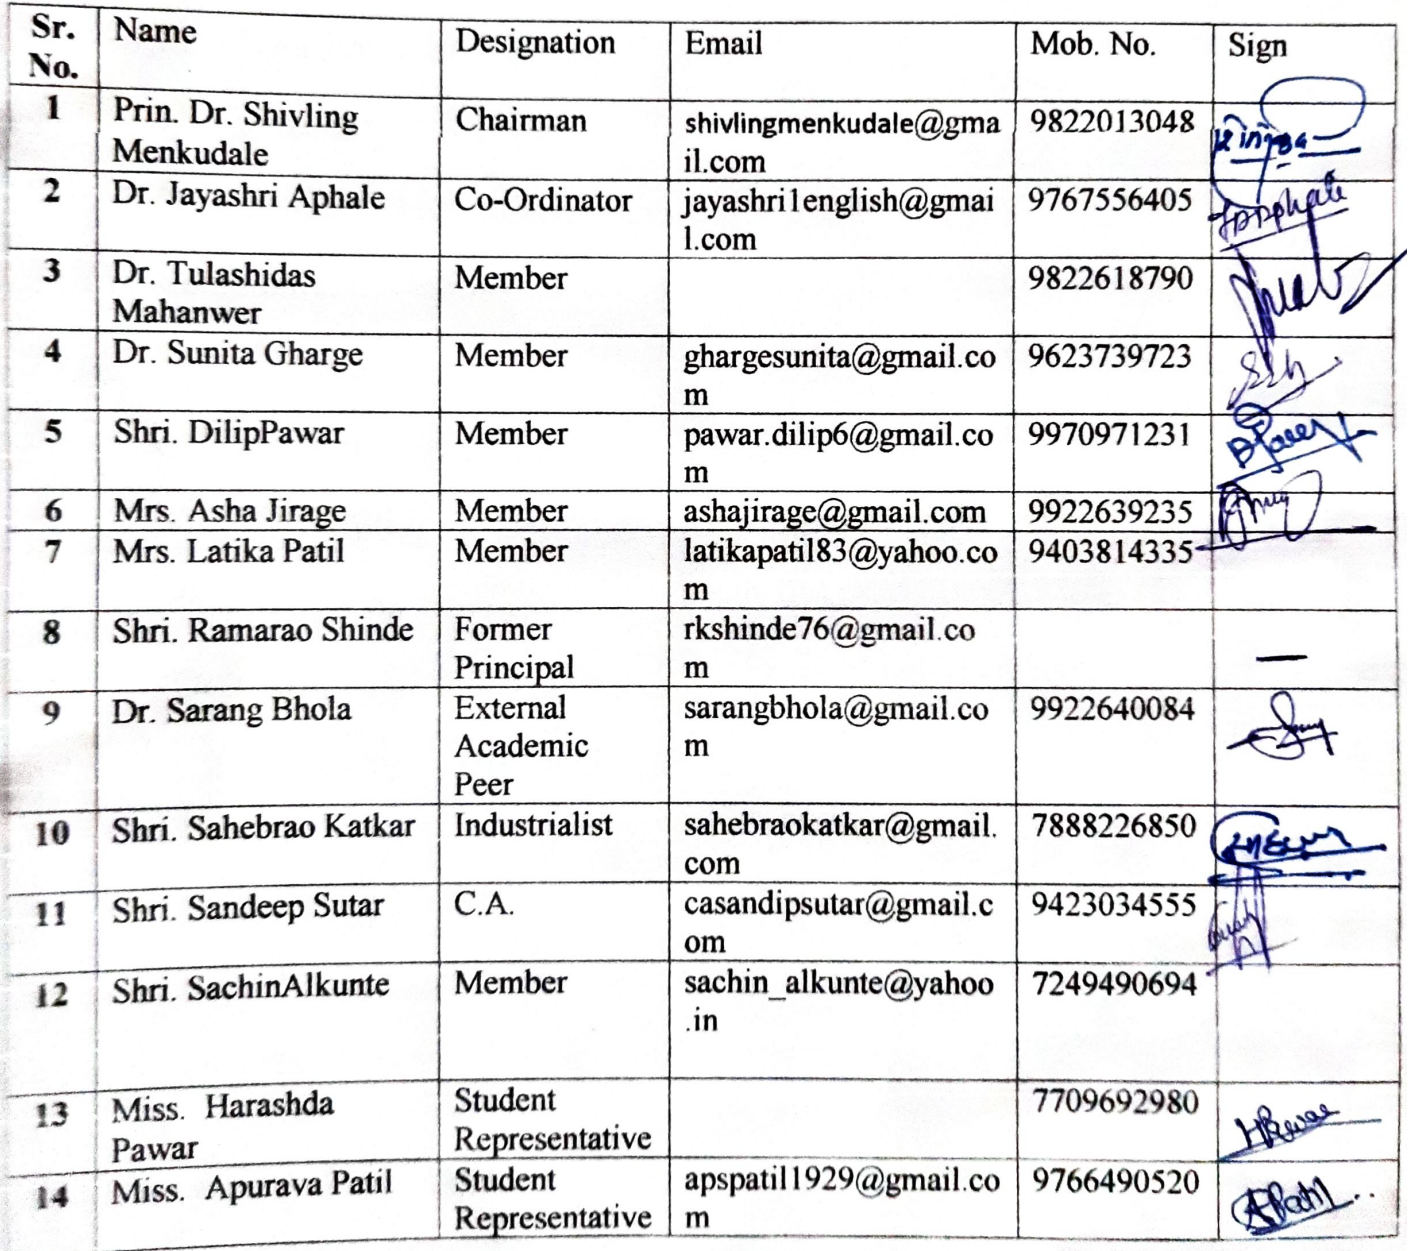 Sr. No. Name Designation Email Mob. No. Sign
1 Prin. Dr. Shivling Menkudale Chairman shivlingmenkudale@gmail.com 9822013048
2 Dr. Jayashri Aphale Co-Ordinator jayashri1english@gmail.com 9767556405
3 Dr. Tulashidas Mahanwer Member 9822618790
4 Dr. Sunita Gharge Member ghargesunita@gmail.com 9623739723
5 Shri. DilipPawar Member pawar.dilip6@gmail.com 9970971231
6 Mrs. Asha Jirage Member ashajirage@gmail.com 9922639235
7 Mrs. Latika Patil Member latikapatil83@yahoo.com 9403814335
8 Shri. Ramarao Shinde Former Principal rkshinde76@gmail.com —
9 Dr. Sarang Bhola External Academic Peer sarangbhola@gmail.com 9922640084
10 Shri. Sahebrao Katkar Industrialist sahebraokatkar@gmail.com 7888226850
11 Shri. Sandeep Sutar C.A. casandipsutar@gmail.com 9423034555
12 Shri. SachinAlkunte Member sachin_alkunte@yahoo.in 7249490694
13 Miss. Harashda Pawar Student Representative 7709692980
14 Miss. Apurava Patil Student Representative apspatil1929@gmail.com 9766490520